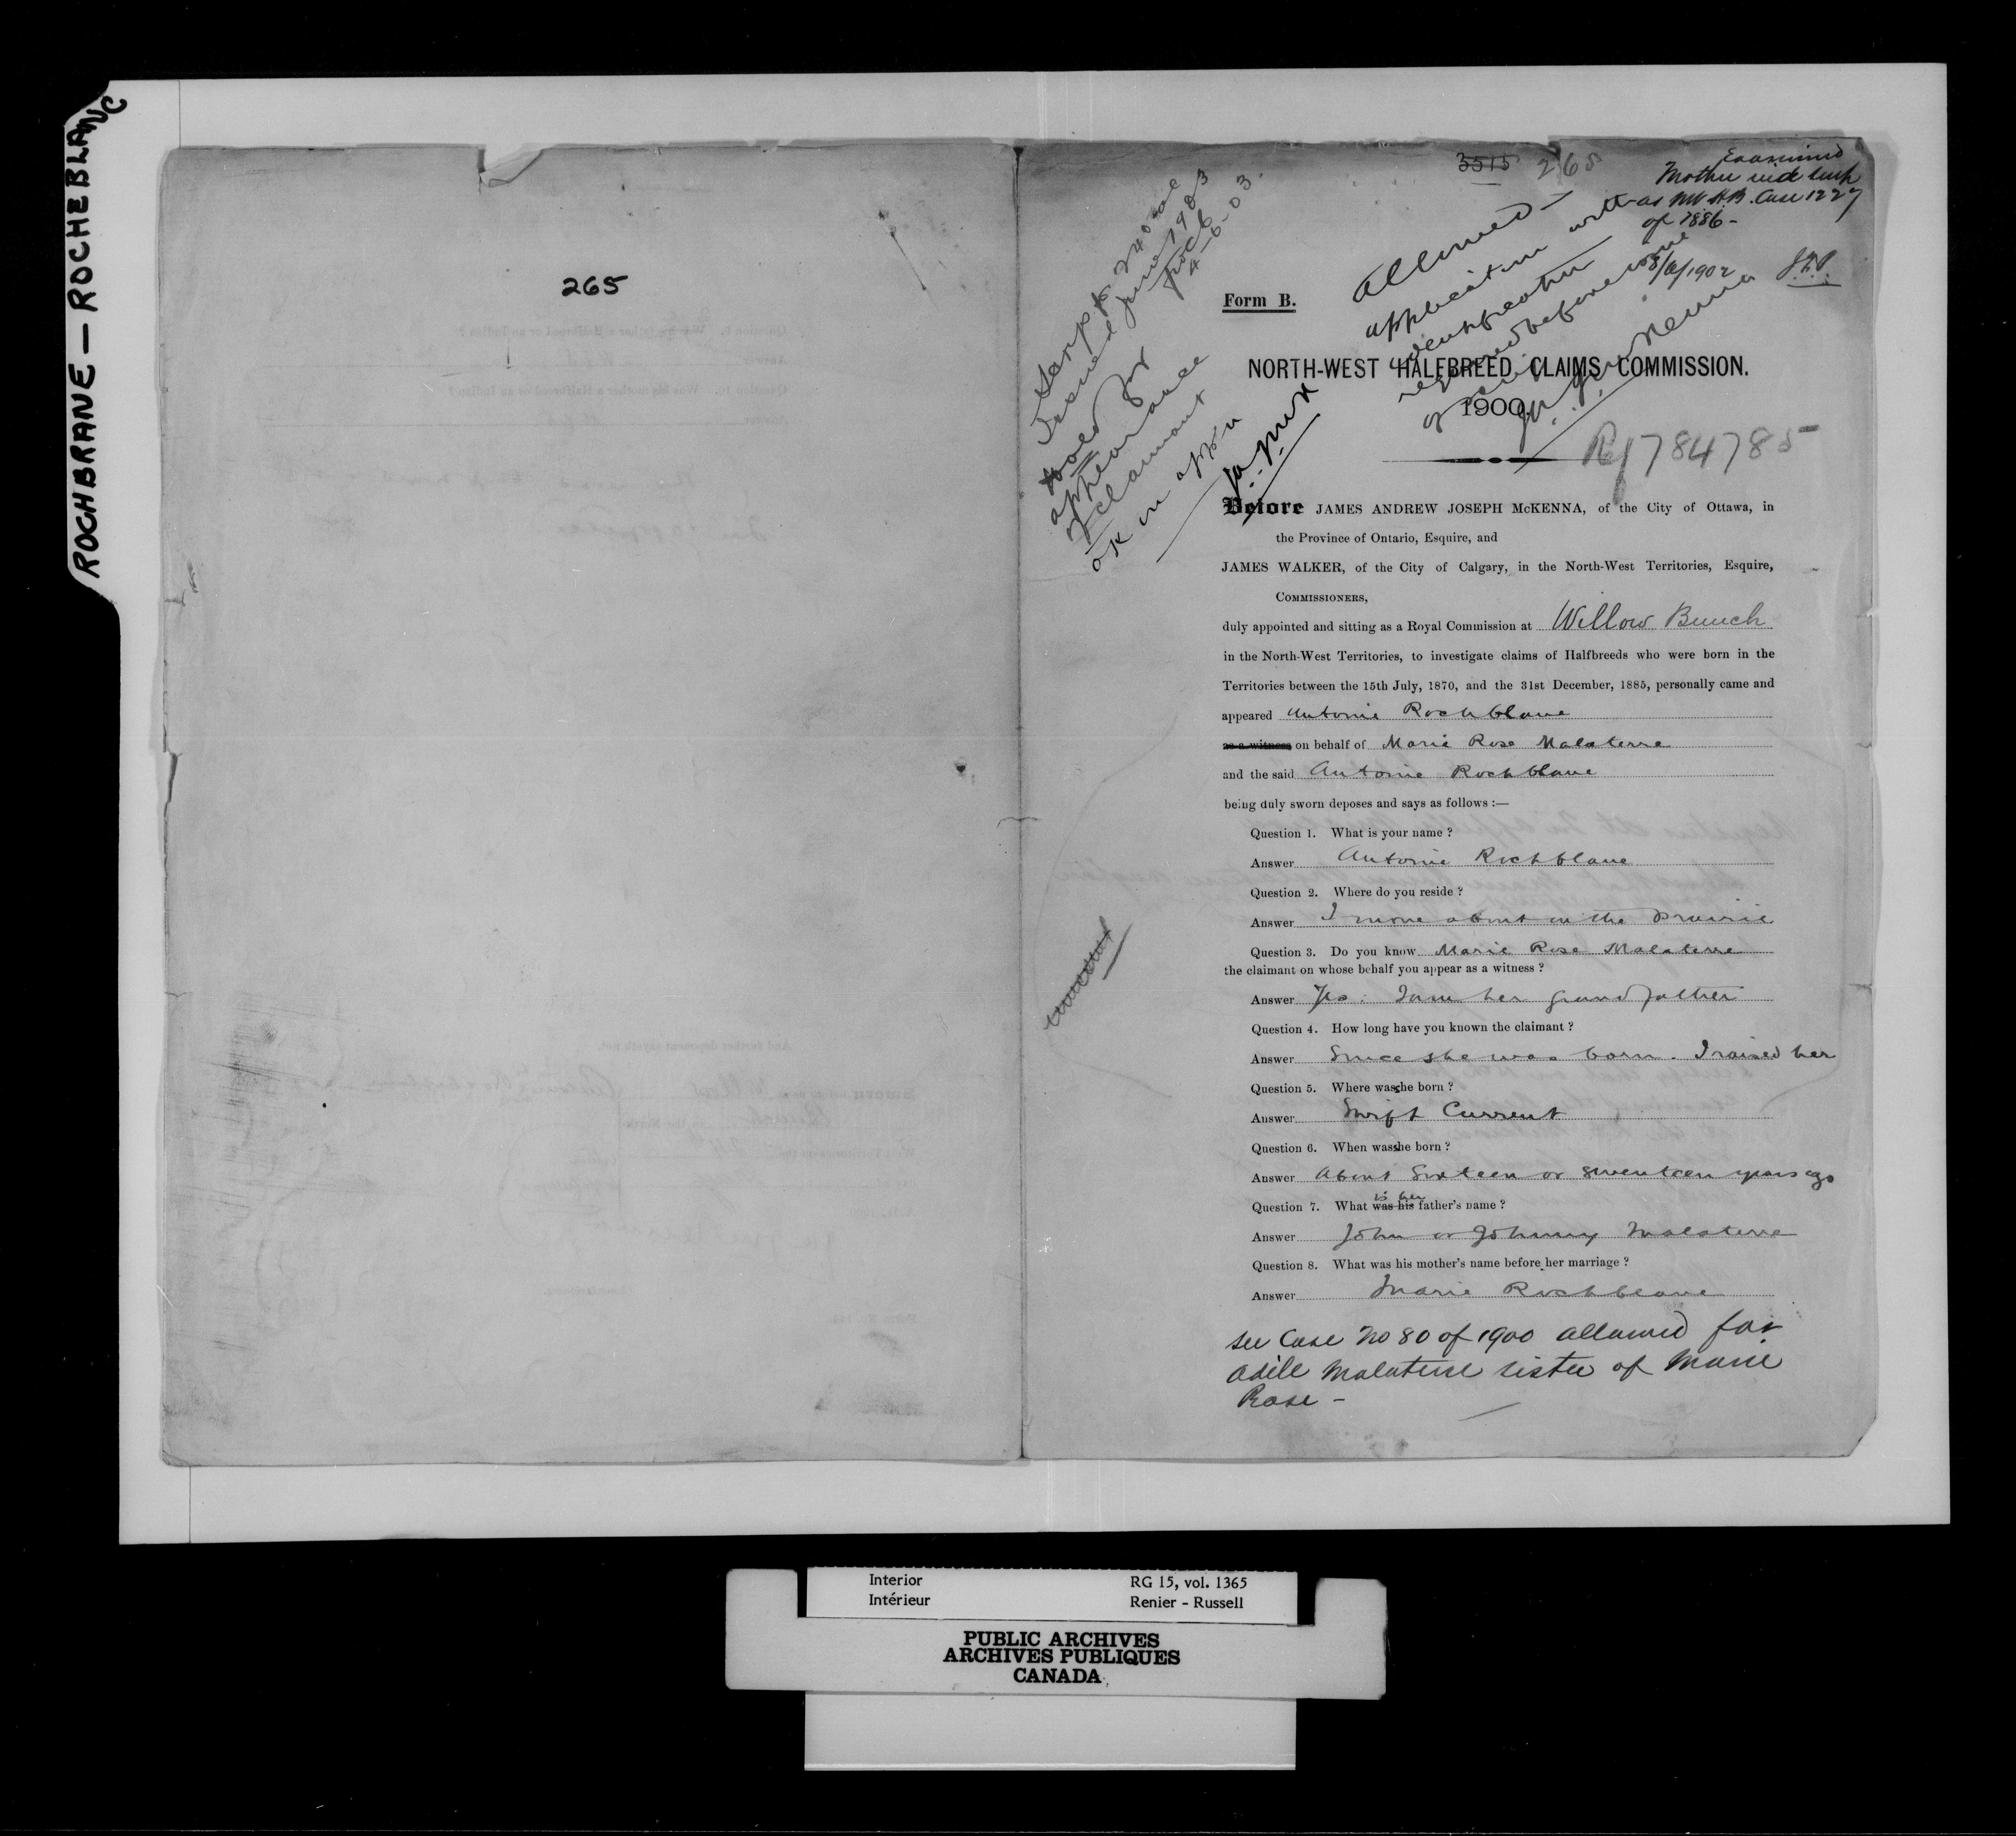 ROCHBRANE — ROCHEBLANC
265
3515 265
Examined
Mother
as NWHB. Case 1227
of 1886 -
8/8/1902
Form B.
Allowed -
application
identification
required before issue
of scrip
J. A. J. McKenna
Scrip for 240 ac
Issued June 1903
4-6-03.
Hold for
appearance
of claimant
OK in app'n
J.A.J.McK
NORTH-WEST HALFBREED CLAIMS COMMISSION.
1900.
Ref 784785
Before JAMES ANDREW JOSEPH McKENNA, of the City of Ottawa, in
the Province of Ontario, Esquire, and
JAMES WALKER, of the City of Calgary, in the North-West Territories, Esquire,
COMMISSIONERS,
duly appointed and sitting as a Royal Commission at Willow Bunch
in the North-West Territories, to investigate claims of Halfbreeds who were born in the
Territories between the 15th July, 1870, and the 31st December, 1885, personally came and
appeared Antoine Rochblave
as a witness on behalf of Marie Rose Malaterre
and the said Antoine Rochblave
being duly sworn deposes and says as follows :—
Question 1. What is your name ?
Answer Antoine Rochblave
Question 2. Where do you reside ?
Answer I move about on the prairie
Question 3. Do you know Marie Rose Malaterre
the claimant on whose behalf you appear as a witness ?
Answer Yes. I am her grandfather
Question 4. How long have you known the claimant ?
Answer Since she was born. I raised her
Question 5. Where was she born ?
Answer Swift Current
Question 6. When was she born ?
Answer About Sixteen or seventeen years ago
Question 7. What was his is her father's name ?
Answer John or Johnny Malaterre
Question 8. What was his mother's name before her marriage ?
Answer Marie Rochblave
See Case No 80 of 1900 allowed for
Adile Malaterre sister of Marie
Rose -
Interior RG 15, vol. 1365
Intérieur Renier - Russell
PUBLIC ARCHIVES
ARCHIVES PUBLIQUES
CANADA